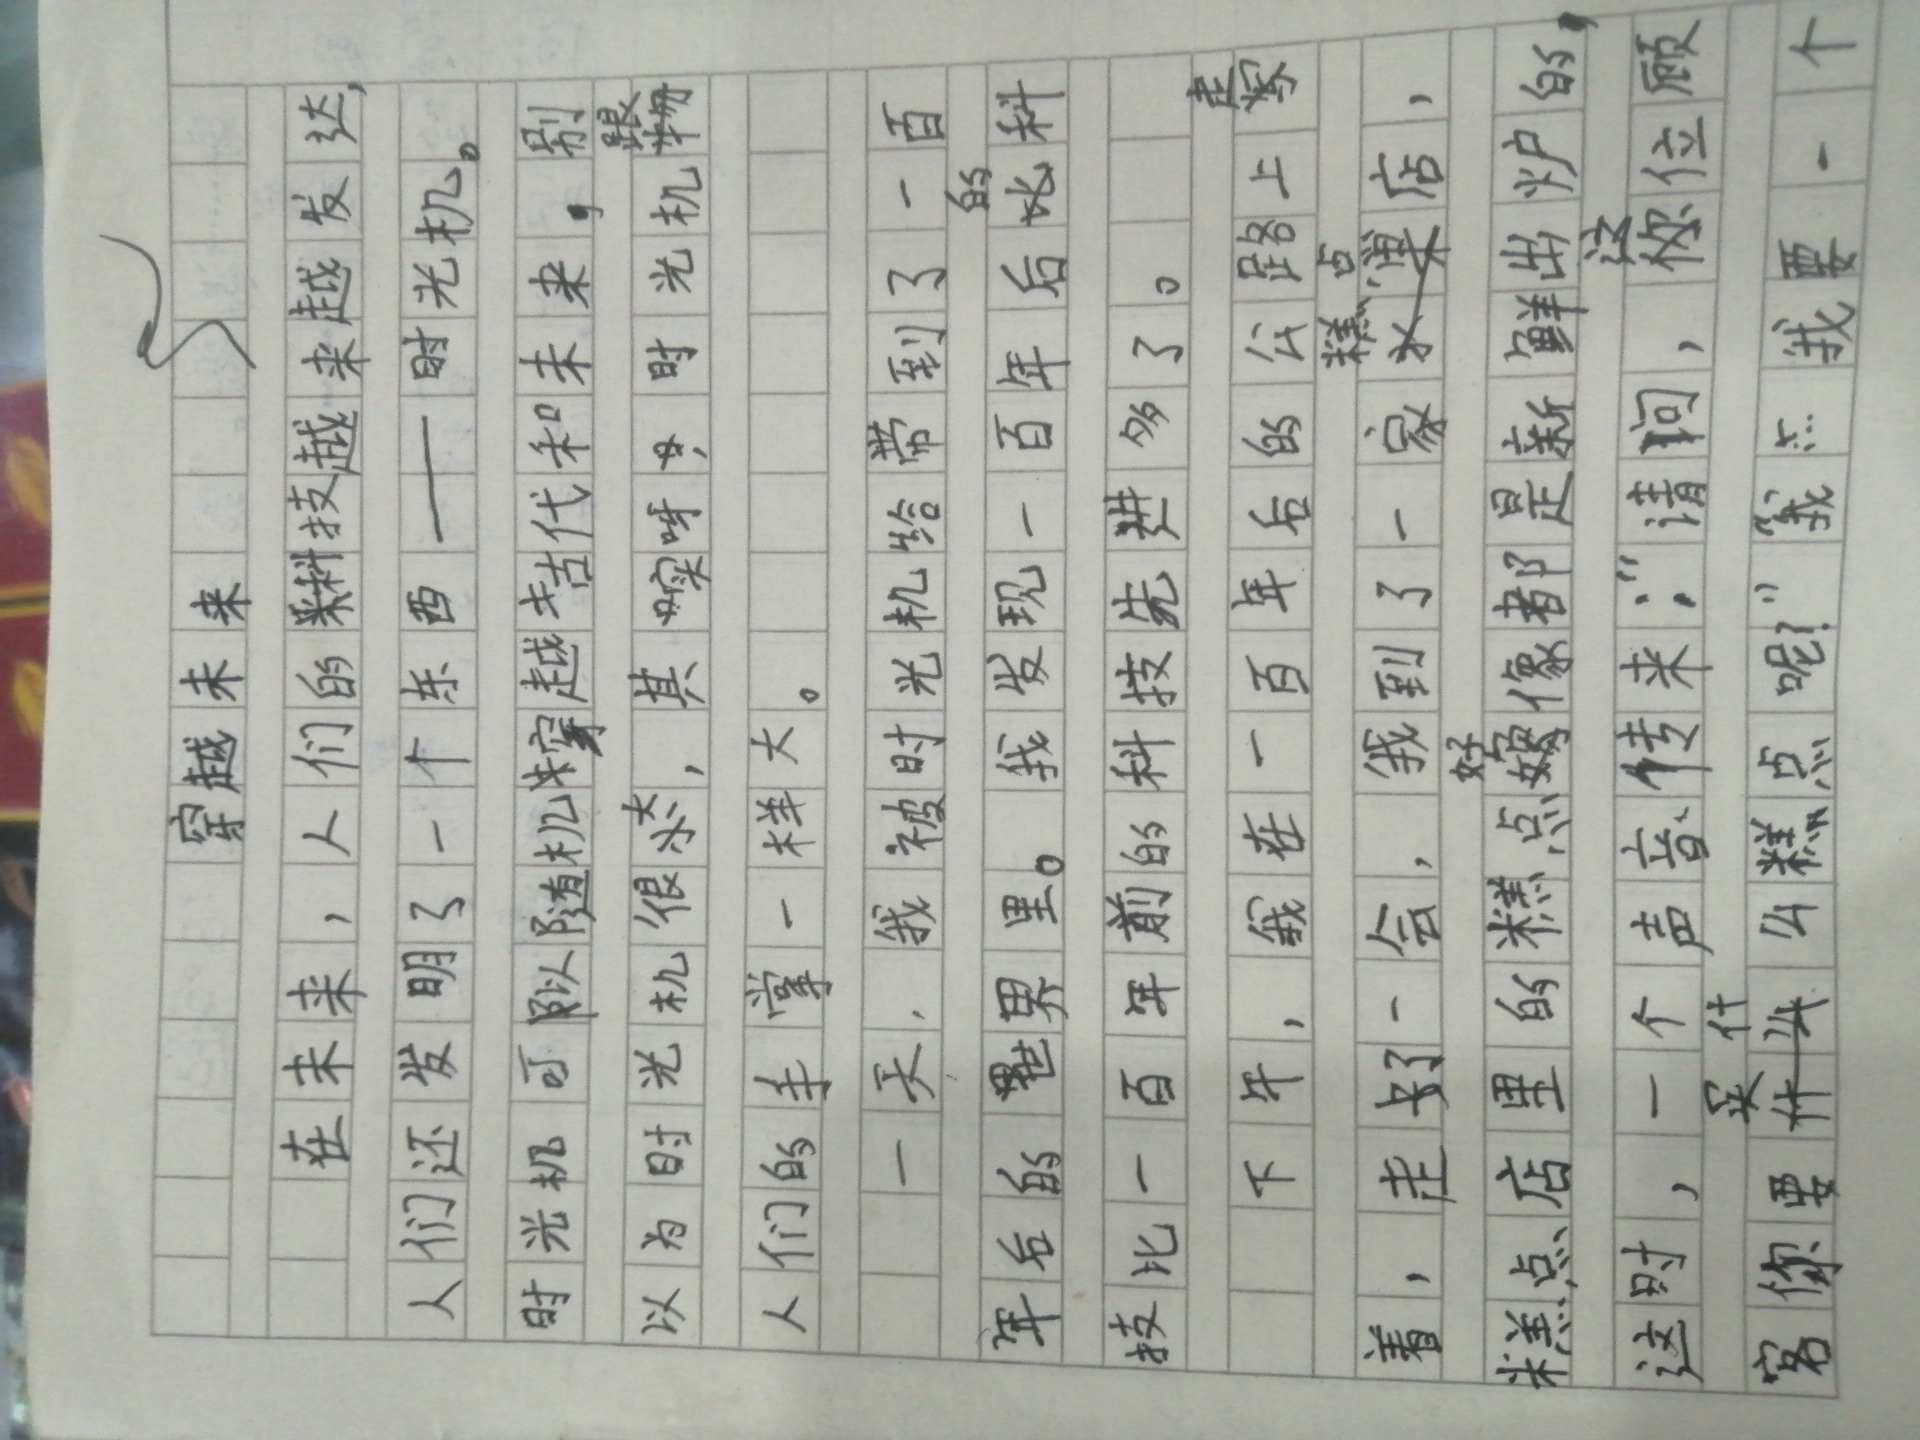 穿越未来
在未来，人们的科技越来越发达，
人们还发明了一个东西——时光机。
时光机可以随机穿越古代和未来，别
以为时光机很大，其实呀，时光机跟
人们的手掌一样大。
一天，我被时光机给带到了一百
年后的世界里。我发现一百年后的科
技比一百年前的科技先进多了。
下午，我在一百年后的公路上走
着，走了一会，我到了一家糕点店，
糕点店里的糕点好像都是新鲜出炉的，
这时，一个声音传来：“请问，这位顾
客你要买什么糕点呢？”“我……我要一个